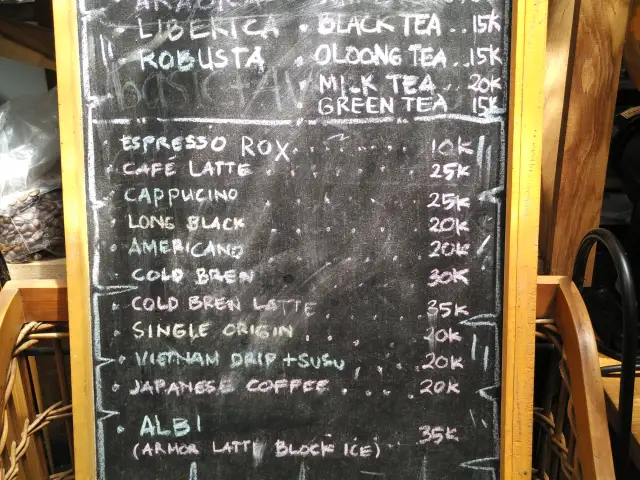 ARABICA
LIBERICA • BLACK TEA .. 15K
ROBUSTA • OLOONG TEA .. 15K
• MILK TEA .. 20K
• GREEN TEA 15K
• ESPRESSO ROX ........ 10K
• CAFÉ LATTE ...... 25K
• CAPPUCINO .... 25K
• LONG BLACK .... 20K
• AMERICANO .... 20K
• COLD BREN .... 30K
• COLD BREN LATTE .... 35K
• SINGLE ORIGIN .... 20K
• VIETNAM DRIP + SUSU .... 20K
• JAPANESE COFFEE .... 20K
• ALBI
(ARMOR LATTE BLOCK ICE) .. 35K